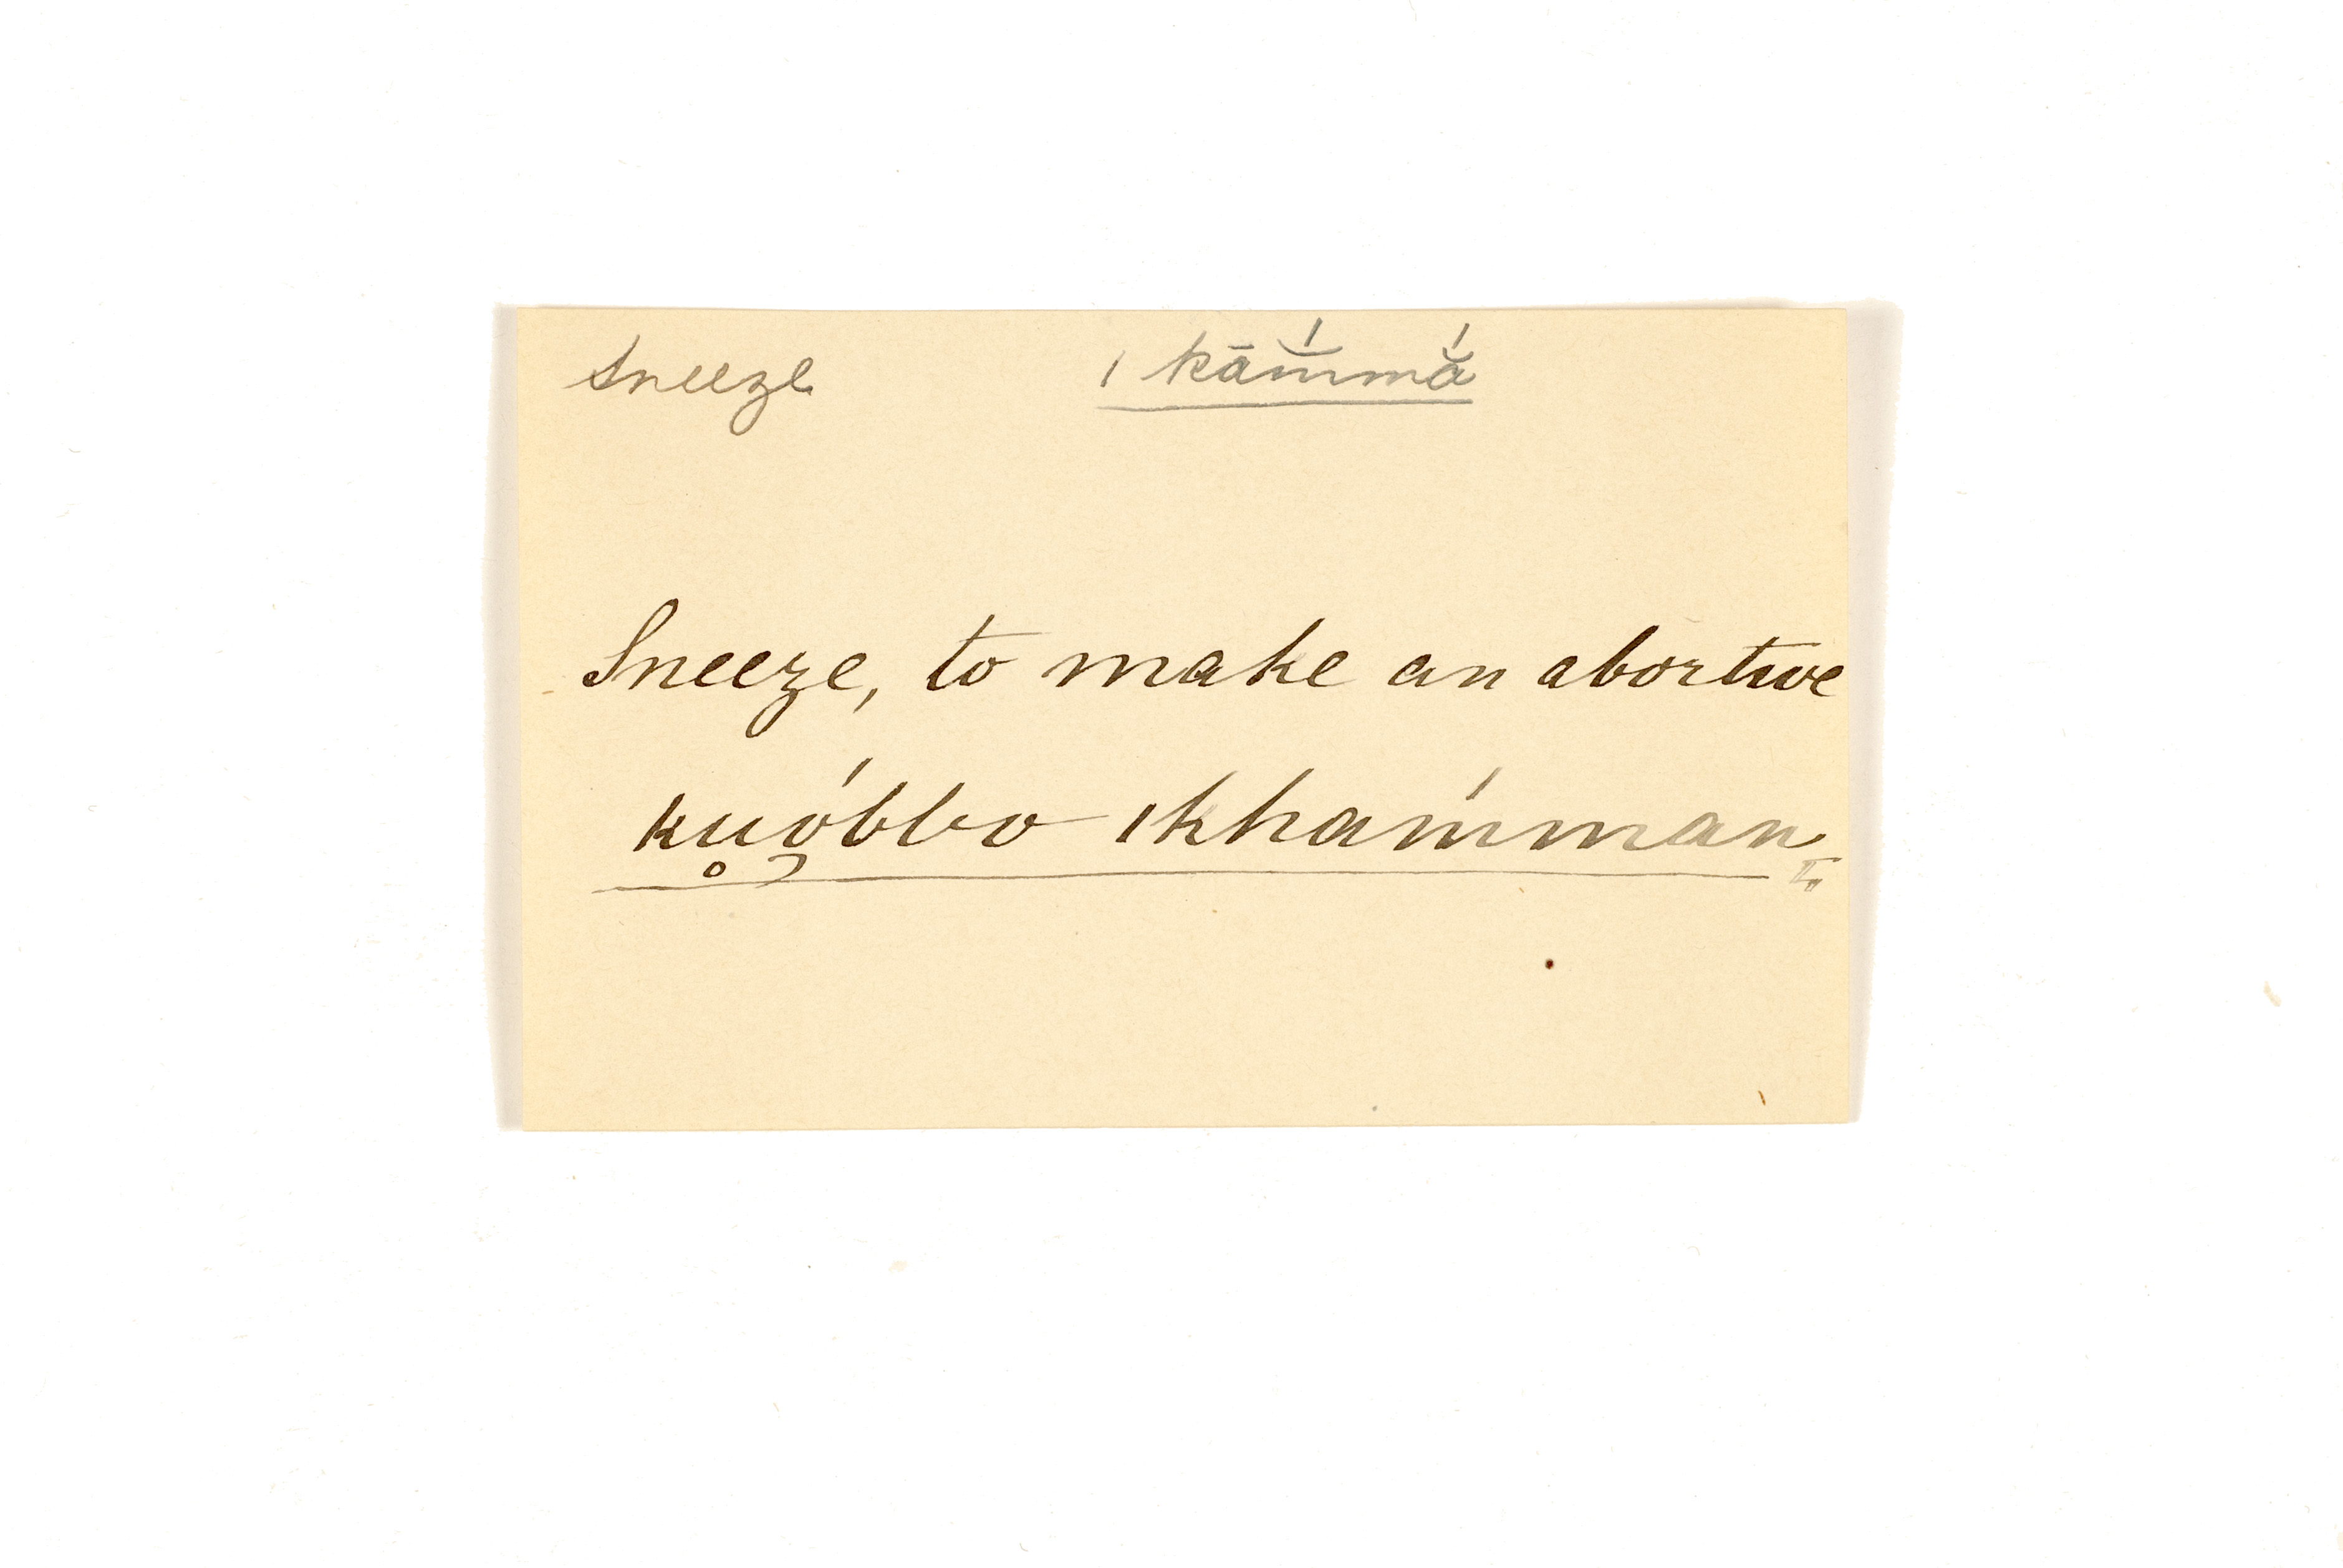 Sneeze ı kā́m̆mắ
Sneeze, to make an abortive
ku̥ó̦bbo ıkham̍man